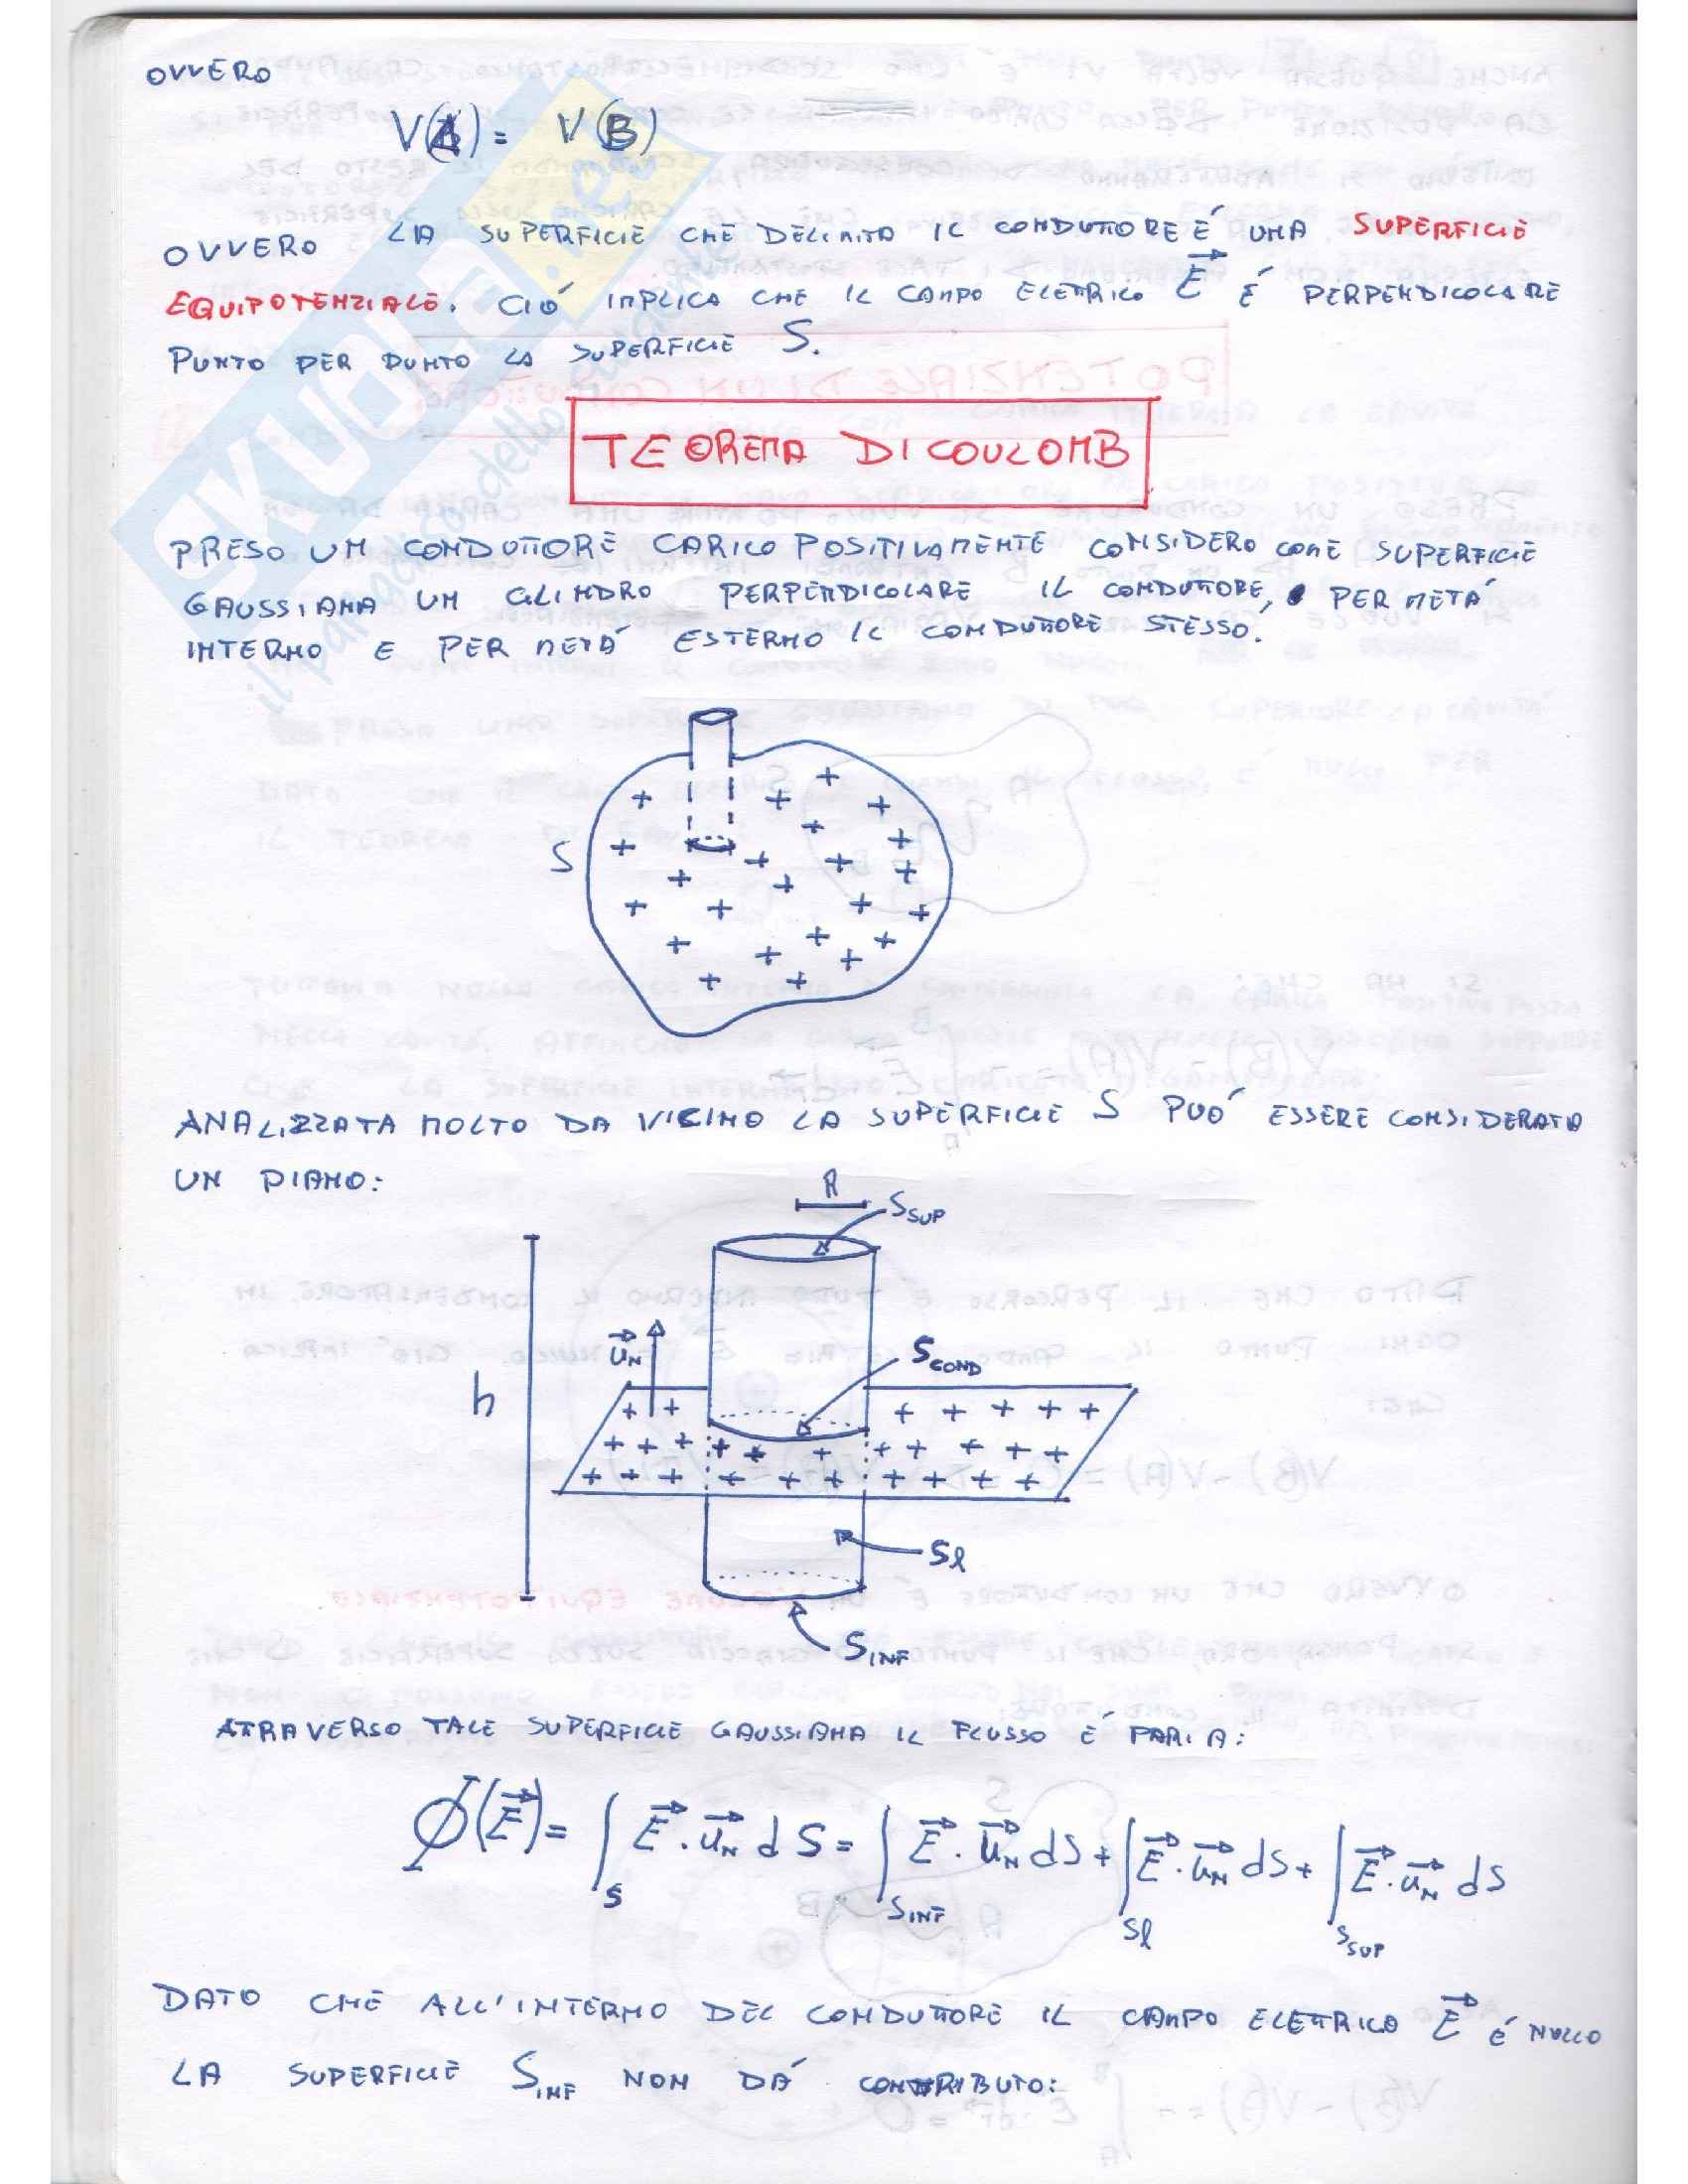 OVVERO
V(A) = V(B)
OVVERO LA SUPERFICIE CHE DELIMITA IL CONDUTTORE É UNA SUPERFICIE
EQUIPOTENZIALE. CIÓ IMPLICA CHE IL CAMPO ELETTRICO E⃗ É PERPENDICOLARE
PUNTO PER PUNTO LA SUPERFICIE S.
TEOREMA DI COULOMB
PRESO UN CONDUTTORE CARICO POSITIVAMENTE CONSIDERO COME SUPERFICIE
GAUSSIANA UN CILINDRO PERPENDICOLARE IL CONDUTTORE, PER METÁ
INTERNO E PER METÁ ESTERNO IL CONDUTTORE STESSO.
S
ANALIZZATA MOLTO DA VICINO LA SUPERFICIE S PUÓ ESSERE CONSIDERATA
UN PIANO:
R
S_SUP
u⃗_N
S_COND
h
S_l
S_INF
ATTRAVERSO TALE SUPERFICIE GAUSSIANA IL FLUSSO É PARI A:
Φ(E⃗) = ∫_S E⃗ · u⃗_N dS = ∫_S_INF E⃗ · u⃗_N dS + ∫_Sl E⃗ · u⃗_N dS + ∫_S_SUP E⃗ · u⃗_N dS
DATO CHE ALL'INTERNO DEL CONDUTTORE IL CAMPO ELETTRICO E⃗ É NULLO
LA SUPERFICIE S_INF NON DÁ CONTRIBUTO:
SKUOLA.net
il paradiso dello